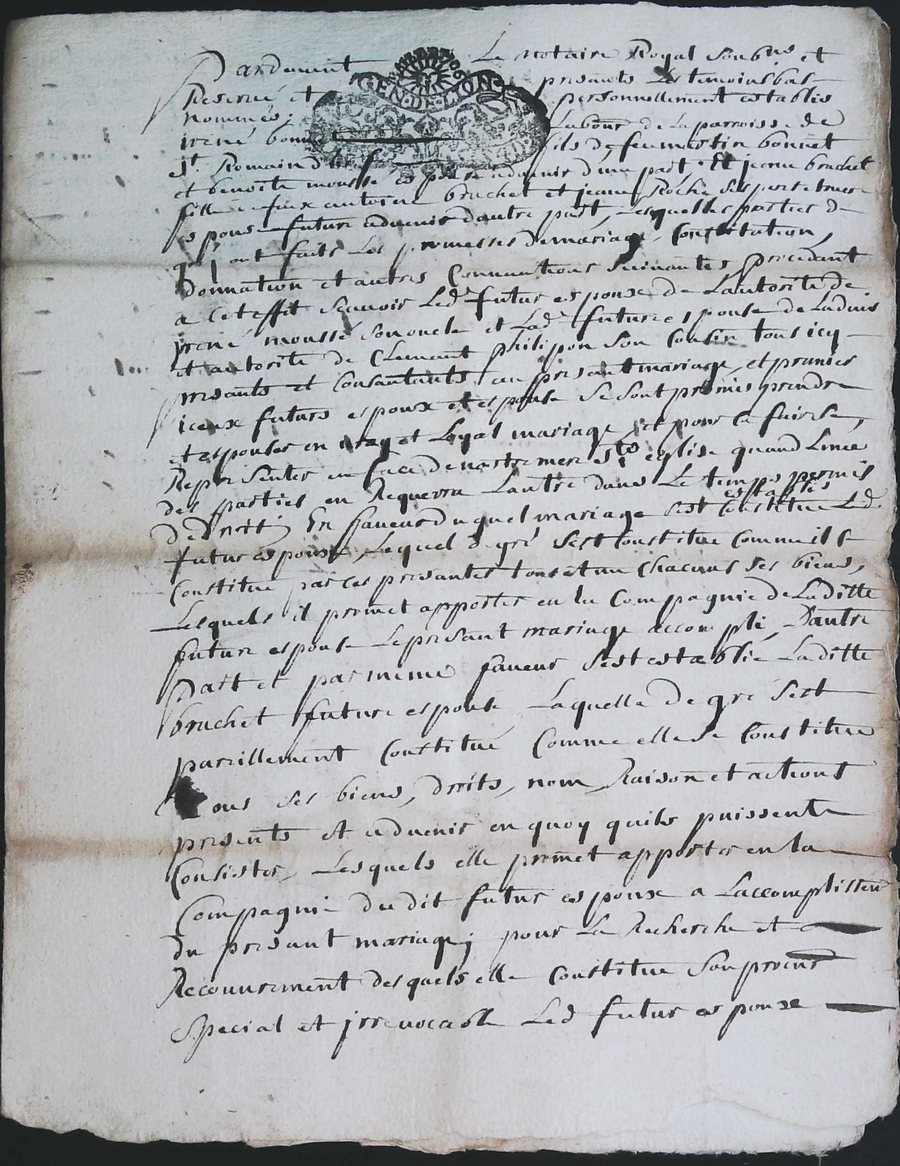 GEN·DE·LION
Pardevant Le notaire Royal Soubné et
Reservé et presents Les temoins bas
nommés, personnellement establis
irené bonnet Labour de la parroisse de
st Romain fils de feu martin bonnet
et benoite mousse espoux advenir d'une part, Et jeanne bruchet
fille à feux antoine bruchet et jeane Roche ses pere et mere
espouse future advenir dautre part, Lesquelles parties de
gré ont faits Les promesses de mariage, Constitution,
donnation et autres Conventions Suivantes, procedant
a cet effet Scavoir Led futur espoux de Lautorité de
irené moussé Son oncle et Lad future espouse de Ladvis
et autorité de Clement philipon Son Cousin tous icy
presants et Consentants au presant mariage, et premier
iceux futurs espoux et espouse Se Sont promis prendre
et espouser en vray et Legal mariage, et pour ce faire Se
Representer en face de nostre mere ste eglise quand Lune
des parties en Requerra Lautre dans Le temps permis
de droit, En faveur duquel mariage Sest establis Led
futur espoux, Lequel de gré Sest Constitué Comme il Se
Constitue par ces presantes tous et un Chacuns Ses biens,
Lesquels il promet apporter en la Compagnie de Laditte
future espouse Le presant mariage accompli, Dautre
part et par meme faveur Sest establié Laditte
bruchet future espouse Laquelle de gré Sest
pareillement Constitué Comme elle Se Constitue
tous ses biens, droits, nom, Raison et actions
presents et advenir en quoy quils puissent
Consister, Lesquels elle promet apporter en la
Compagnie dudit futur espoux a Laccomplissem
du presant mariage; pour La Recherche et
Recouvrement desquels elle Constitue Son procur
Special et irrevocable Led futur espoux